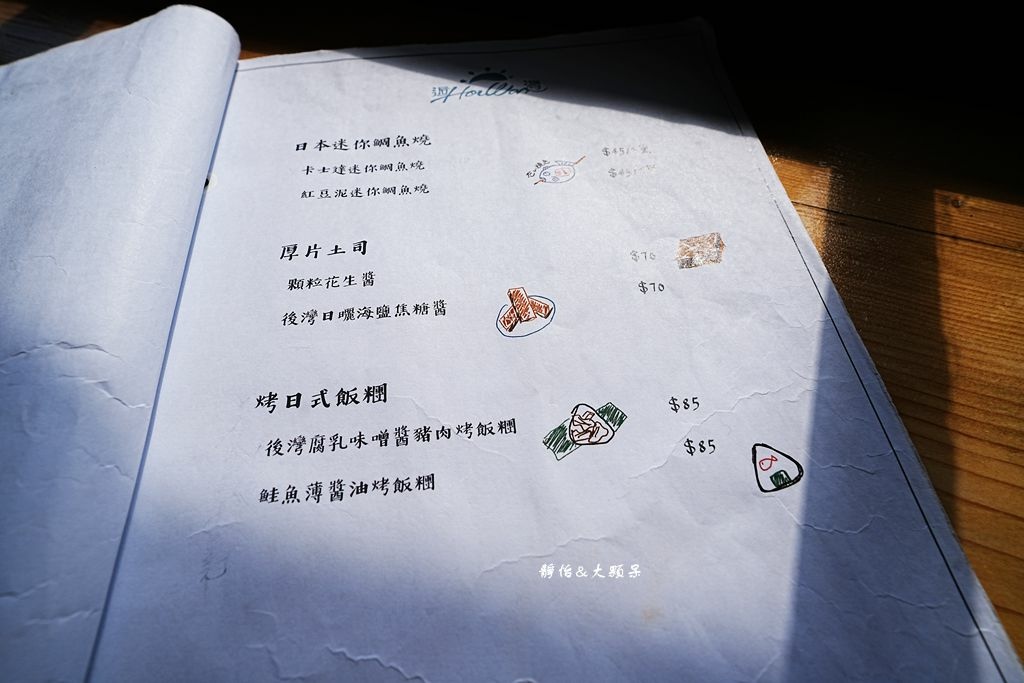 HouWan 灣
日本迷你鯛魚燒
卡士達迷你鯛魚燒 $45/
紅豆泥迷你鯛魚燒 $45/
厚片土司
顆粒花生醬 $70
後灣日曬海鹽焦糖醬 $70
烤日式飯糰
後灣腐乳味噌醬豬肉烤飯糰 $85
鮭魚薄醬油烤飯糰 $85
靜怡&大顆呆